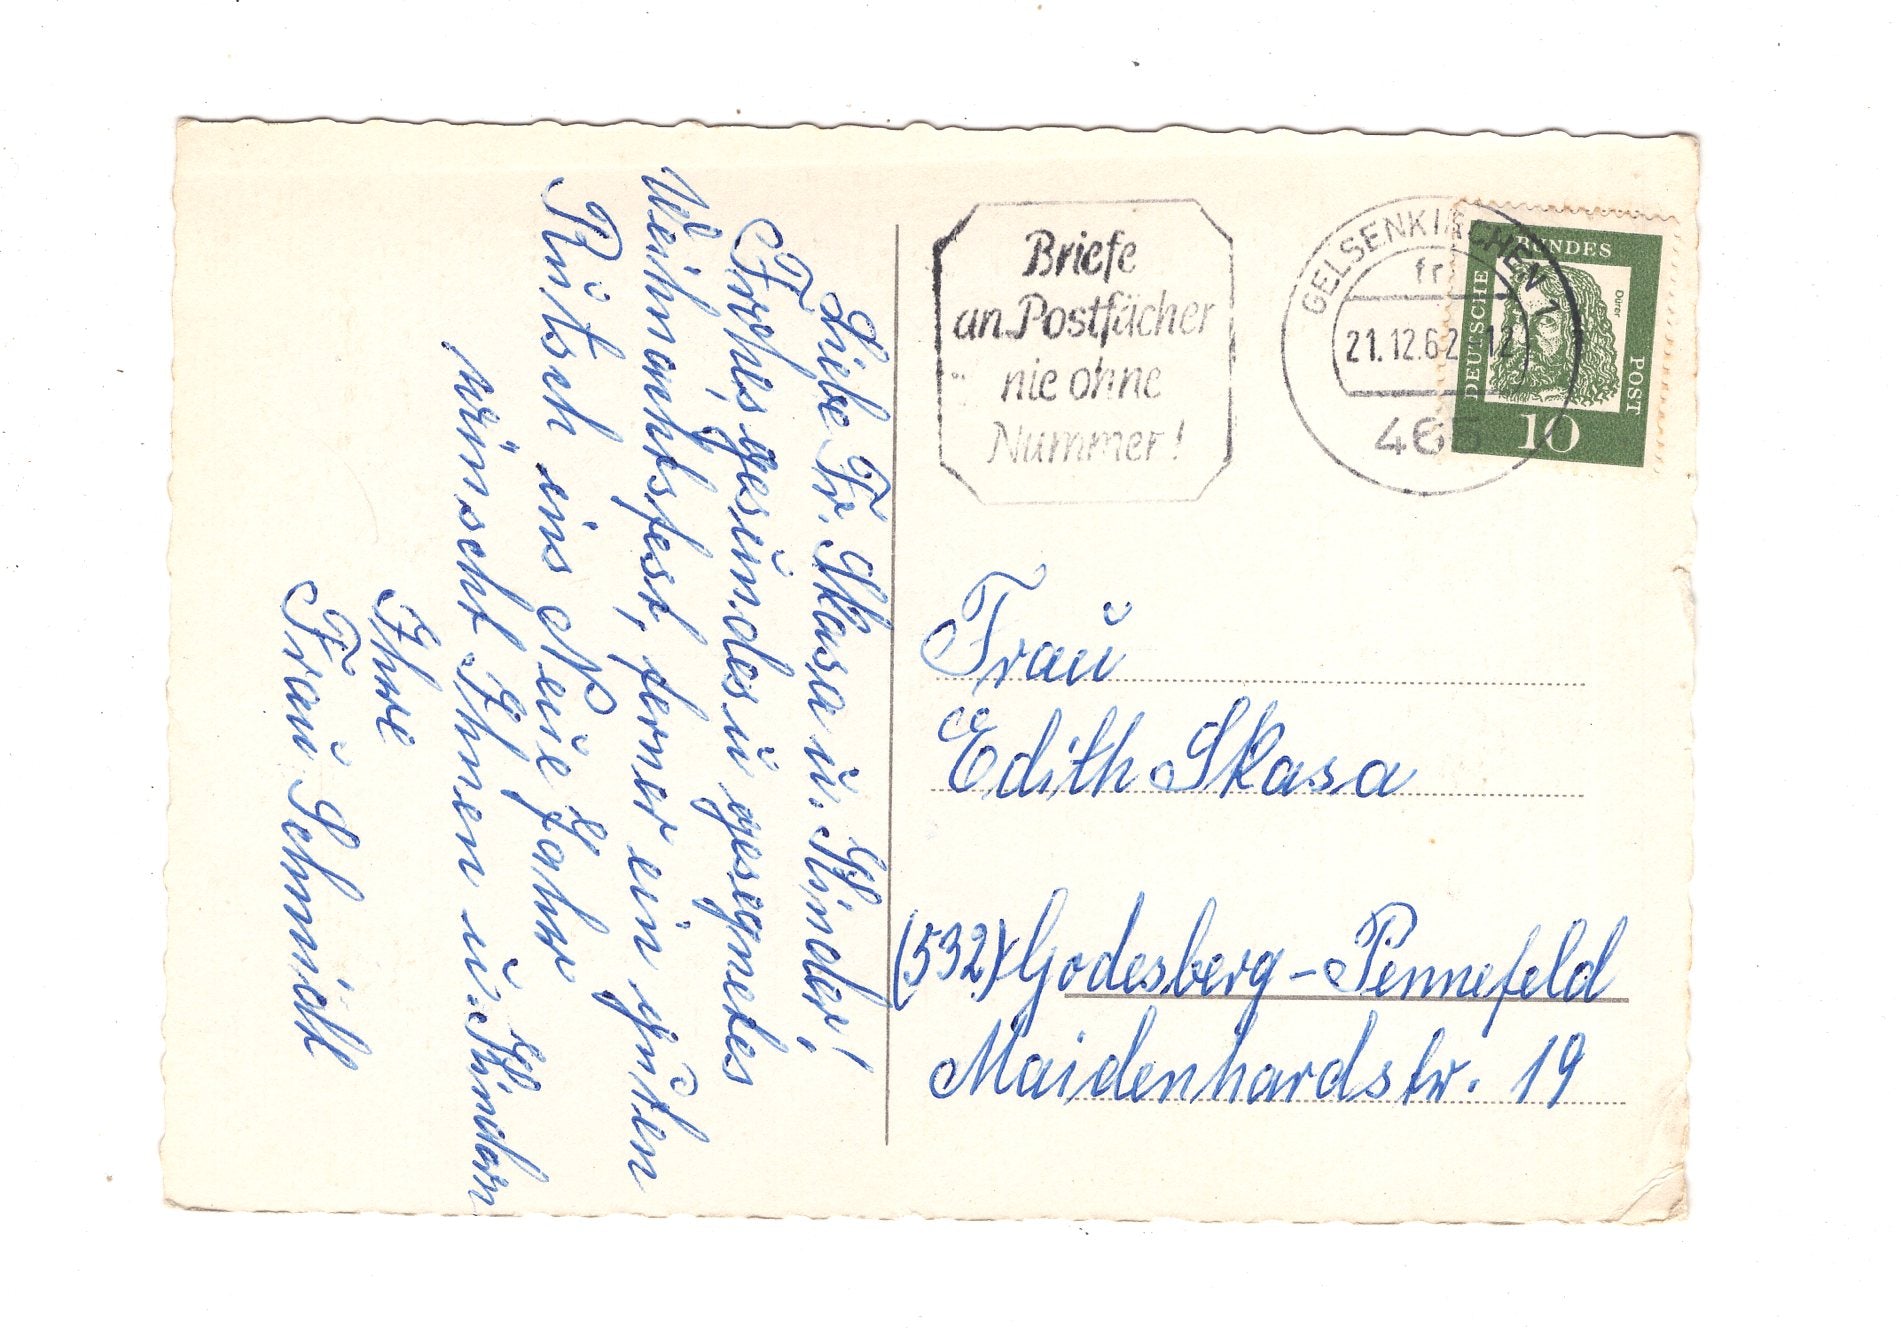 Liebe Fr. Skasa u. Kinder!
Frohes, gesundes u gesegnetes
Weihnachtsfest, ferner ein guten
Rutsch ins Neue Jahr
wünscht Ihnen u. Kindern
Ihre
Frau Schmidt
Briefe
an Postfächer
nie ohne
Nummer!
GELSENKIRCHEN 1
21.12.62 12
465
DEUTSCHE BUNDES POST
Dürer
10
Frau
Edith Skasa
(532) Godesberg-Pennefeld
Maidenhardstr. 19